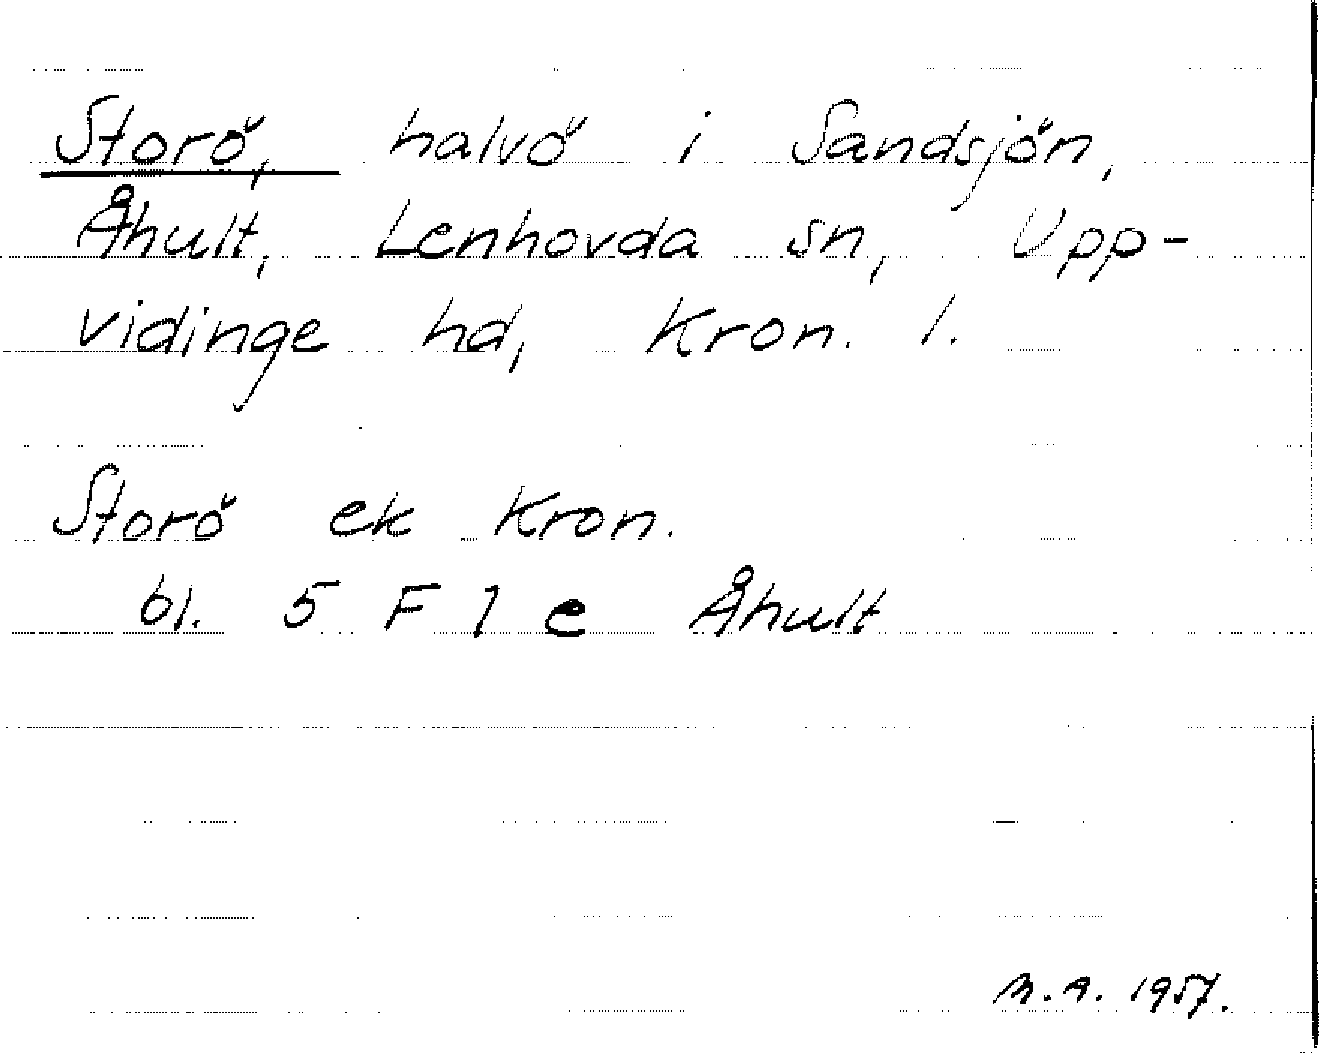 Storö, halvö i Sandsjön,
Åhult, Lenhovda sn, Upp-
vidinge hd, Kron. l.
Storö ek Kron.
bl. 5 F 1 e Åhult
M.A. 1957.